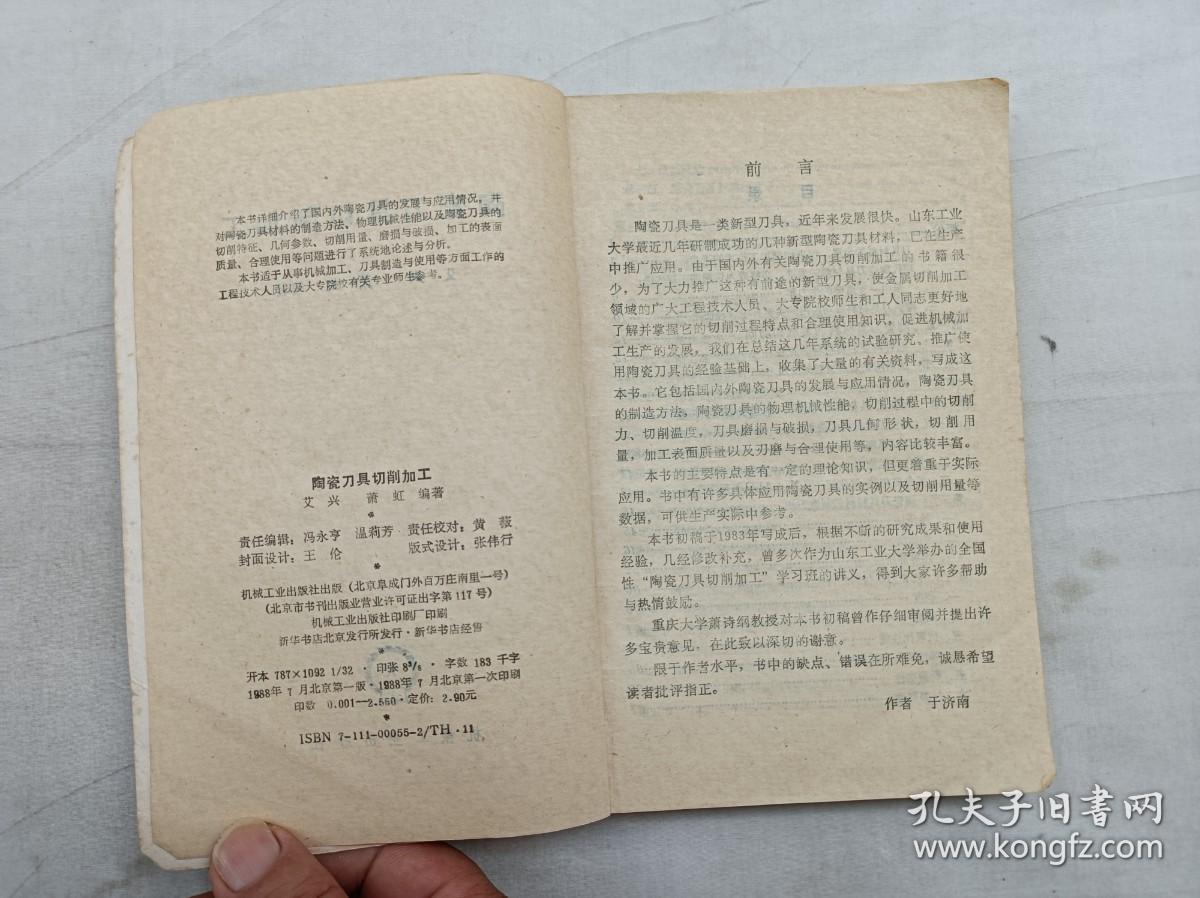 本书详细介绍了国内外陶瓷刀具的发展与应用情况，并
对陶瓷刀具材料的制造方法、物理机械性能以及陶瓷刀具的
切削特征、几何参数、切削用量、磨损与破损、加工的表面
质量、合理使用等问题进行了系统地论述与分析。
本书适于从事机械加工、刀具制造与使用等方面工作的
工程技术人员以及大专院校有关专业师生参考。
陶瓷刀具切削加工
艾兴 萧虹 编著
*
责任编辑：冯永亨 温莉芳 责任校对：黄薇
封面设计：王伦 版式设计：张伟行
*
机械工业出版社出版（北京阜成门外百万庄南里一号）
（北京市书刊出版业营业许可证出字第117号）
机械工业出版社印刷厂印刷
新华书店北京发行所发行·新华书店经售
*
开本 787×1092 1/32 · 印张 8 3/8 · 字数 183 千字
1988年7月北京第一版·1988年7月北京第一次印刷
印数 0,001—2,560·定价：2.90元
*
ISBN 7-111-00055-2/TH·11
前言
陶瓷刀具是一类新型刀具，近年来发展很快。山东工业
大学最近几年研制成功的几种新型陶瓷刀具材料，已在生产
中推广应用。由于国内外有关陶瓷刀具切削加工的书籍很
少，为了大力推广这种有前途的新型刀具，使金属切削加工
领域的广大工程技术人员、大专院校师生和工人同志更好地
了解并掌握它的切削过程特点和合理使用知识，促进机械加
工生产的发展，我们在总结这几年系统的试验研究、推广使
用陶瓷刀具的经验基础上，收集了大量的有关资料，写成这
本书。它包括国内外陶瓷刀具的发展与应用情况，陶瓷刀具
的制造方法，陶瓷刀具的物理机械性能，切削过程中的切削
力、切削温度，刀具磨损与破损，刀具几何形状，切削用
量，加工表面质量以及刃磨与合理使用等，内容比较丰富。
本书的主要特点是有一定的理论知识，但更着重于实际
应用。书中有许多具体应用陶瓷刀具的实例以及切削用量等
数据，可供生产实际中参考。
本书初稿于1983年写成后，根据不断的研究成果和使用
经验，几经修改补充，曾多次作为山东工业大学举办的全国
性“陶瓷刀具切削加工”学习班的讲义，得到大家许多帮助
与热情鼓励。
重庆大学萧诗纲教授对本书初稿曾作仔细审阅并提出许
多宝贵意见，在此致以深切的谢意。
限于作者水平，书中的缺点、错误在所难免，诚恳希望
读者批评指正。
作者 于济南
孔夫子旧书网
www.kongfz.com